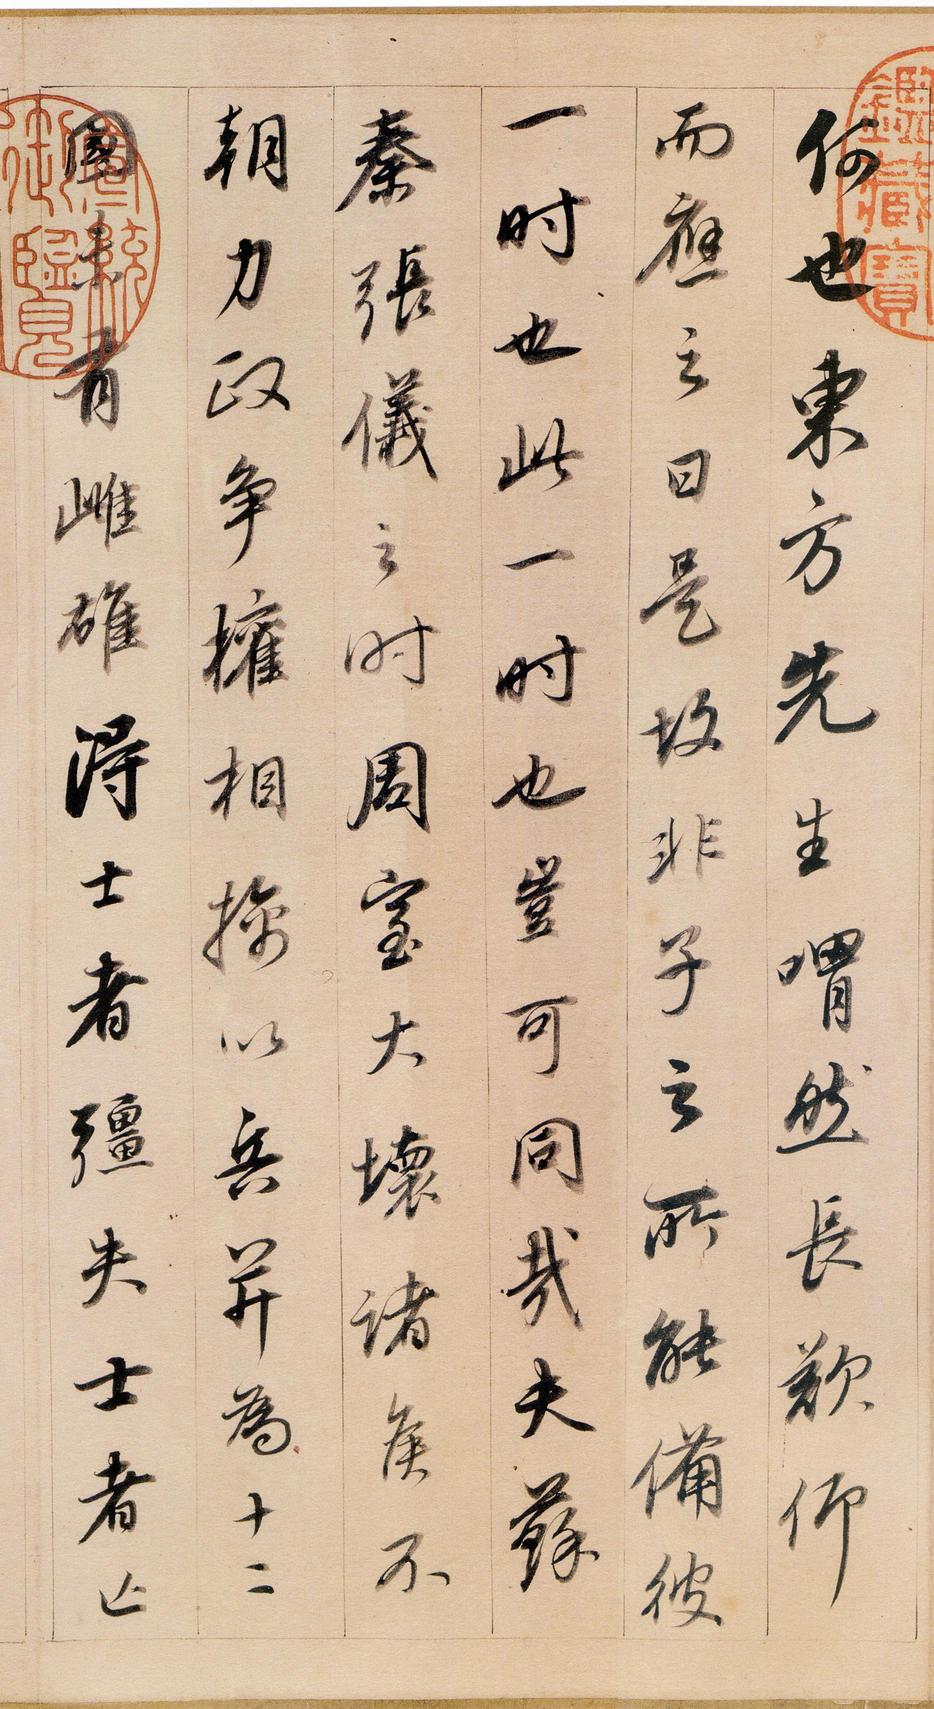 何也東方先生喟然長歎仰
而應之曰是故非子之所能備彼
一时也此一时也豈可同哉夫蘇
秦張儀之时周室大壞諸侯不
朝力政争權相擒以兵并為十二
國未有雌雄得士者彊失士者亡
鑑藏寶
宣統御覽